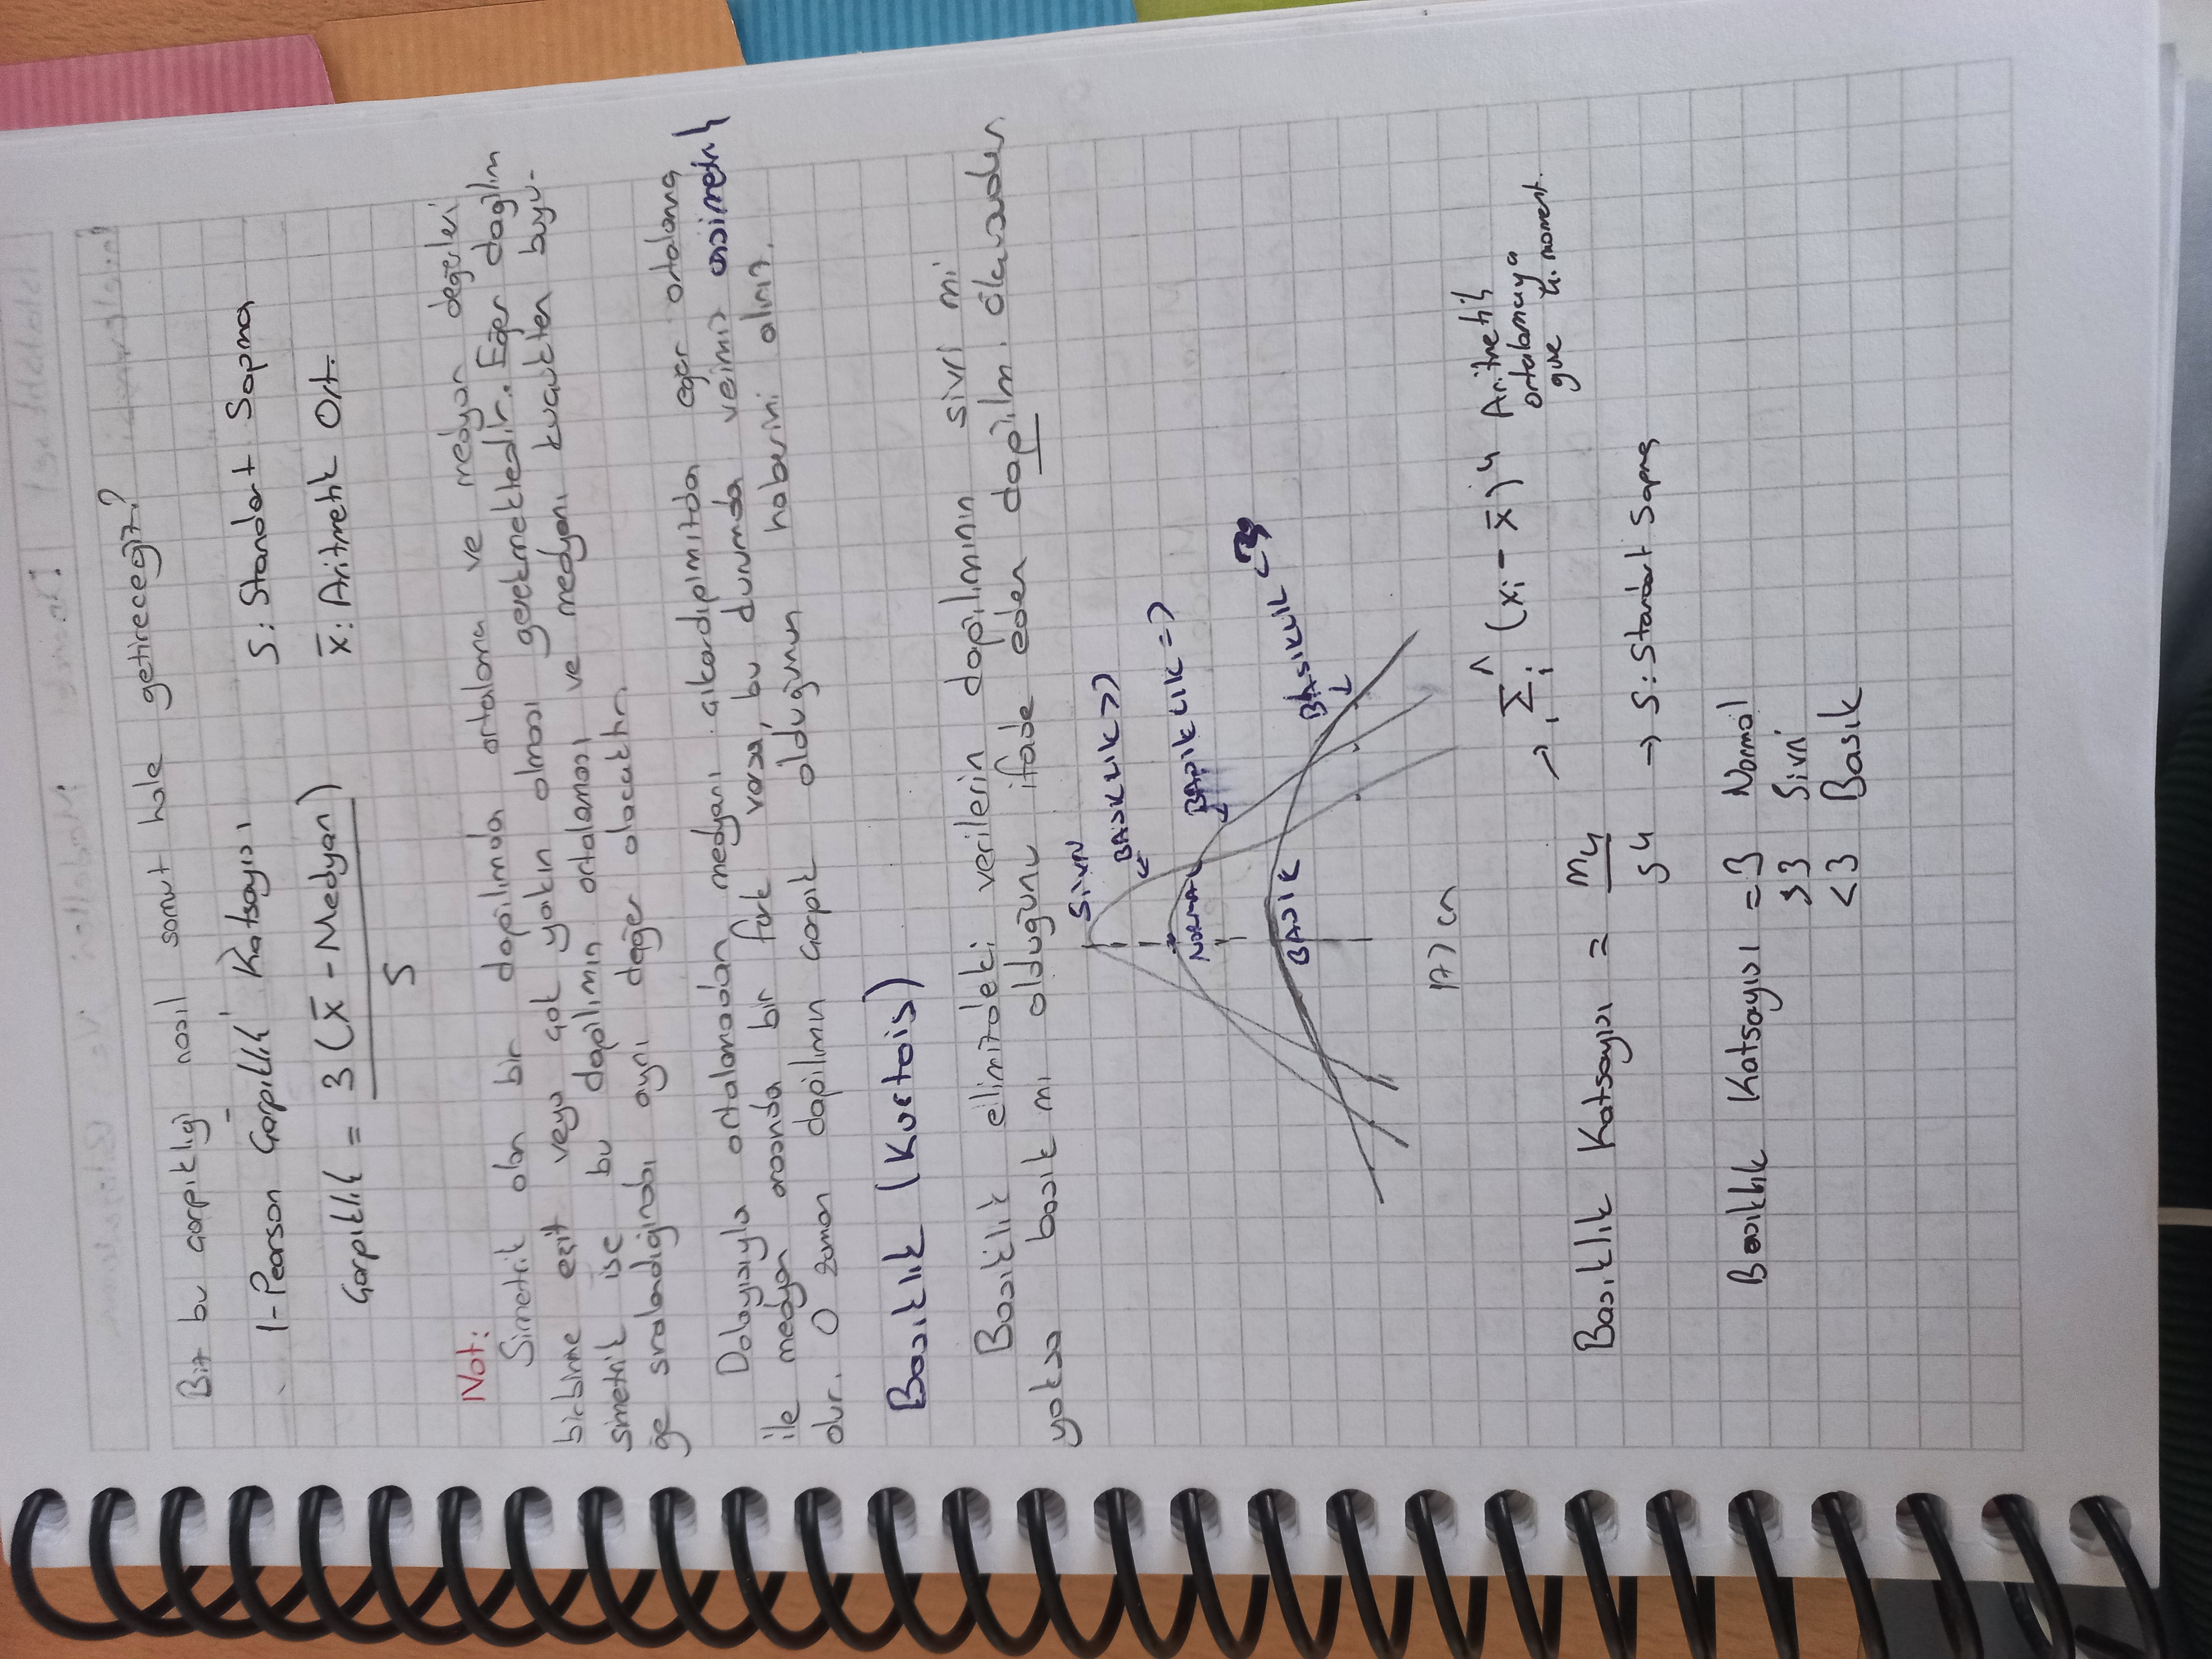 Biz bu çarpıklığı nasıl somut hale getireceğiz?
1-Pearson Çarpıklık Katsayısı
S: Standart Sapma
Çarpıklık = 3 (x̄ - Medyan) / S
x̄: Aritmetik Ort.
Not:
Simetrik olan bir dağılımda ortalama ve medyan değerleri
birbirine eşit veya çok yakın olması gerekmektedir. Eğer dağılım
simetrik ise bu dağılımın ortalaması ve medyanı küçükten büyü-
ğe sıralandığında aynı değer olacaktır.
Dolayısıyla ortalamadan medyanı çıkardığımızda eğer ortalama
ile medyan arasında bir fark varsa, bu durumda verimiz asimetrik
olur. O zaman dağılımın çarpık olduğunun haberini alırız.
Basıklık (Kurtois)
Basıklık elimizdeki verilerin dağılımının sivri mi
yoksa basık mı olduğunu ifade eden dağılım
SİVRİ
BASIKLIK >3
NORMAL
BASIKLIK =3
BASIK
BASIKLIK <3
177 cm
→ Σ (xi - x̄)⁴ Aritmetik
ortalamaya
göre 4. moment.
Basıklık Katsayısı = m4 / s⁴
→ S: Standart Sapma
Basıklık Katsayısı =3 Normal
>3 Sivri
<3 Basık